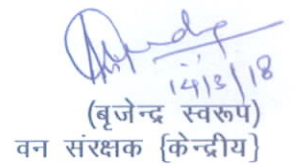 14/3/18
(बृजेन्द्र स्वरूप)
वन संरक्षक {केन्द्रीय}